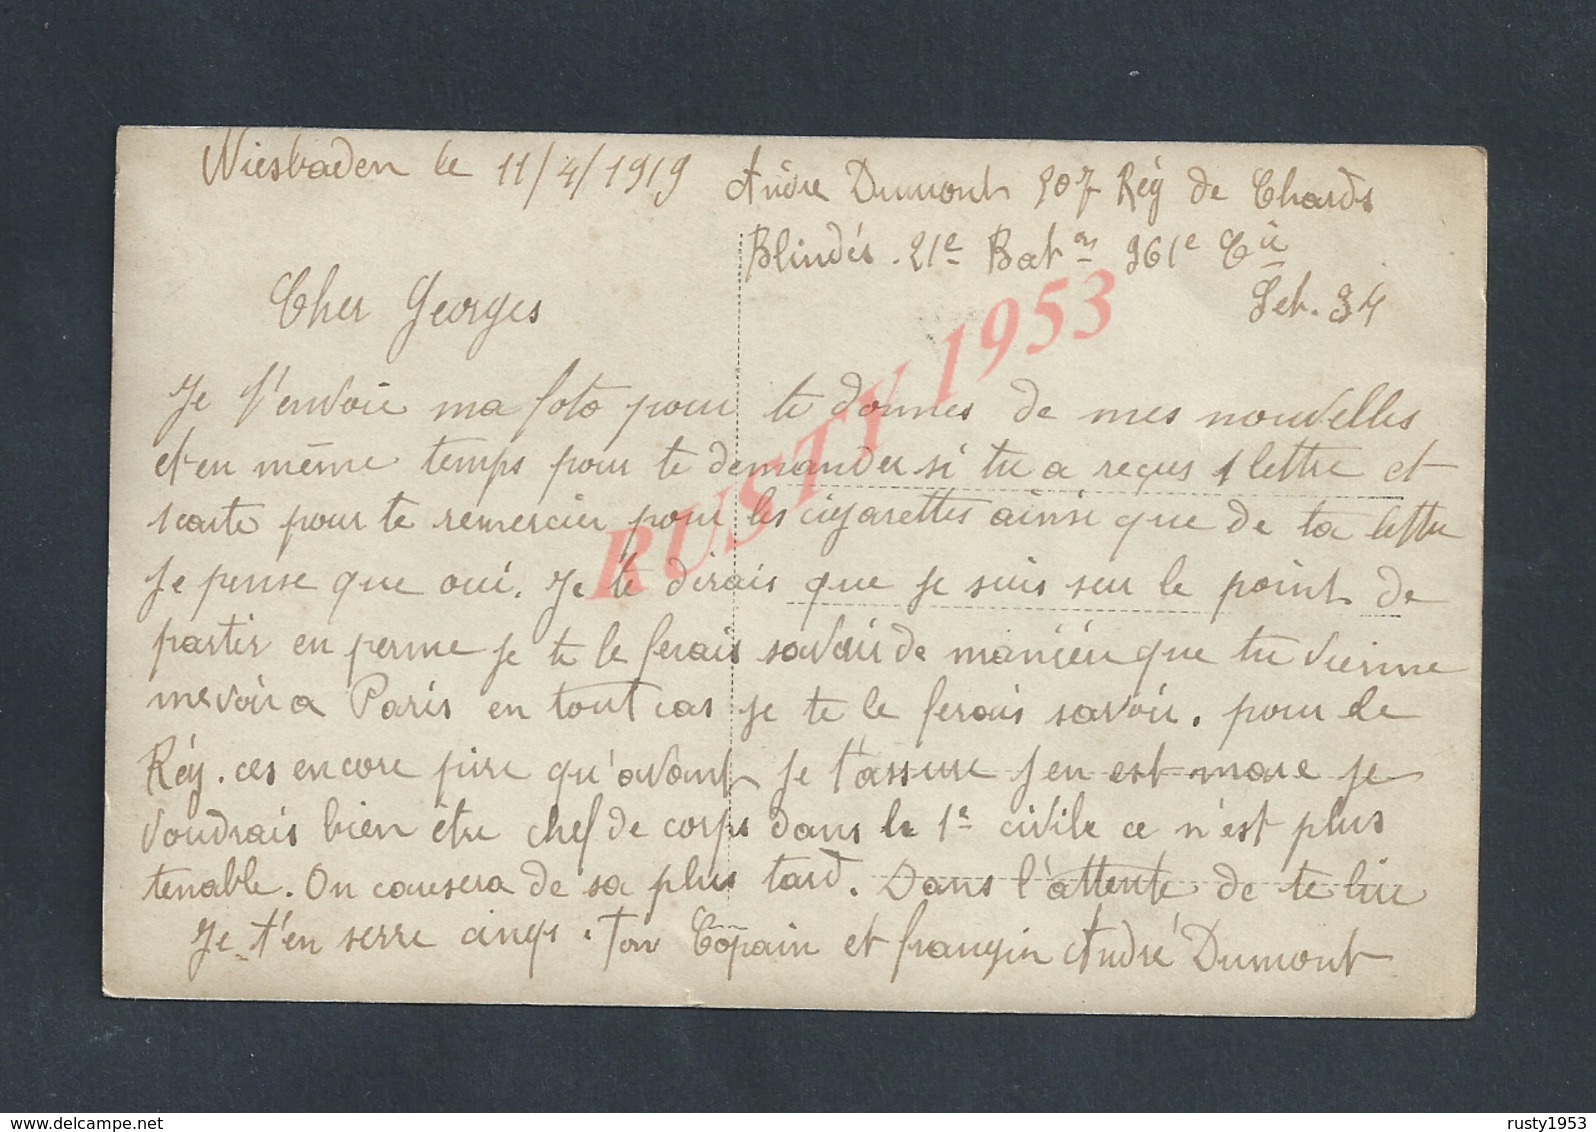 Wiesbaden le 11/4/1919
André Dumont 507 Rég de Chards
Blindés. 21e Baton 361e Cie
Set. 34
Cher Georges
Je t'envoie ma foto pour te donnes de mes nouvelles
et en même temps pour te demander si tu a reçus 1 lettre et
1 carte pour te remercier pour les cigarettes ainsi que de ta lettre
je pense que oui. Je te dirais que je suis sur le point de
partir en perme je te le ferais savoir de manière que tu vienne
me voir a Paris en tout cas je te le ferais savoir. pour le
Rég. ces encore pire qu'avant je t'assure j'en est mare je
voudrais bien être chef de corps dans le 1e civile ce n'est plus
tenable. On causera de sa plus tard. Dans l'attente de te lire
Je t'en serre cinqs. Ton Copain et frangin André Dumont
RUSTY 1953
www.delcampe.net
rusty1953